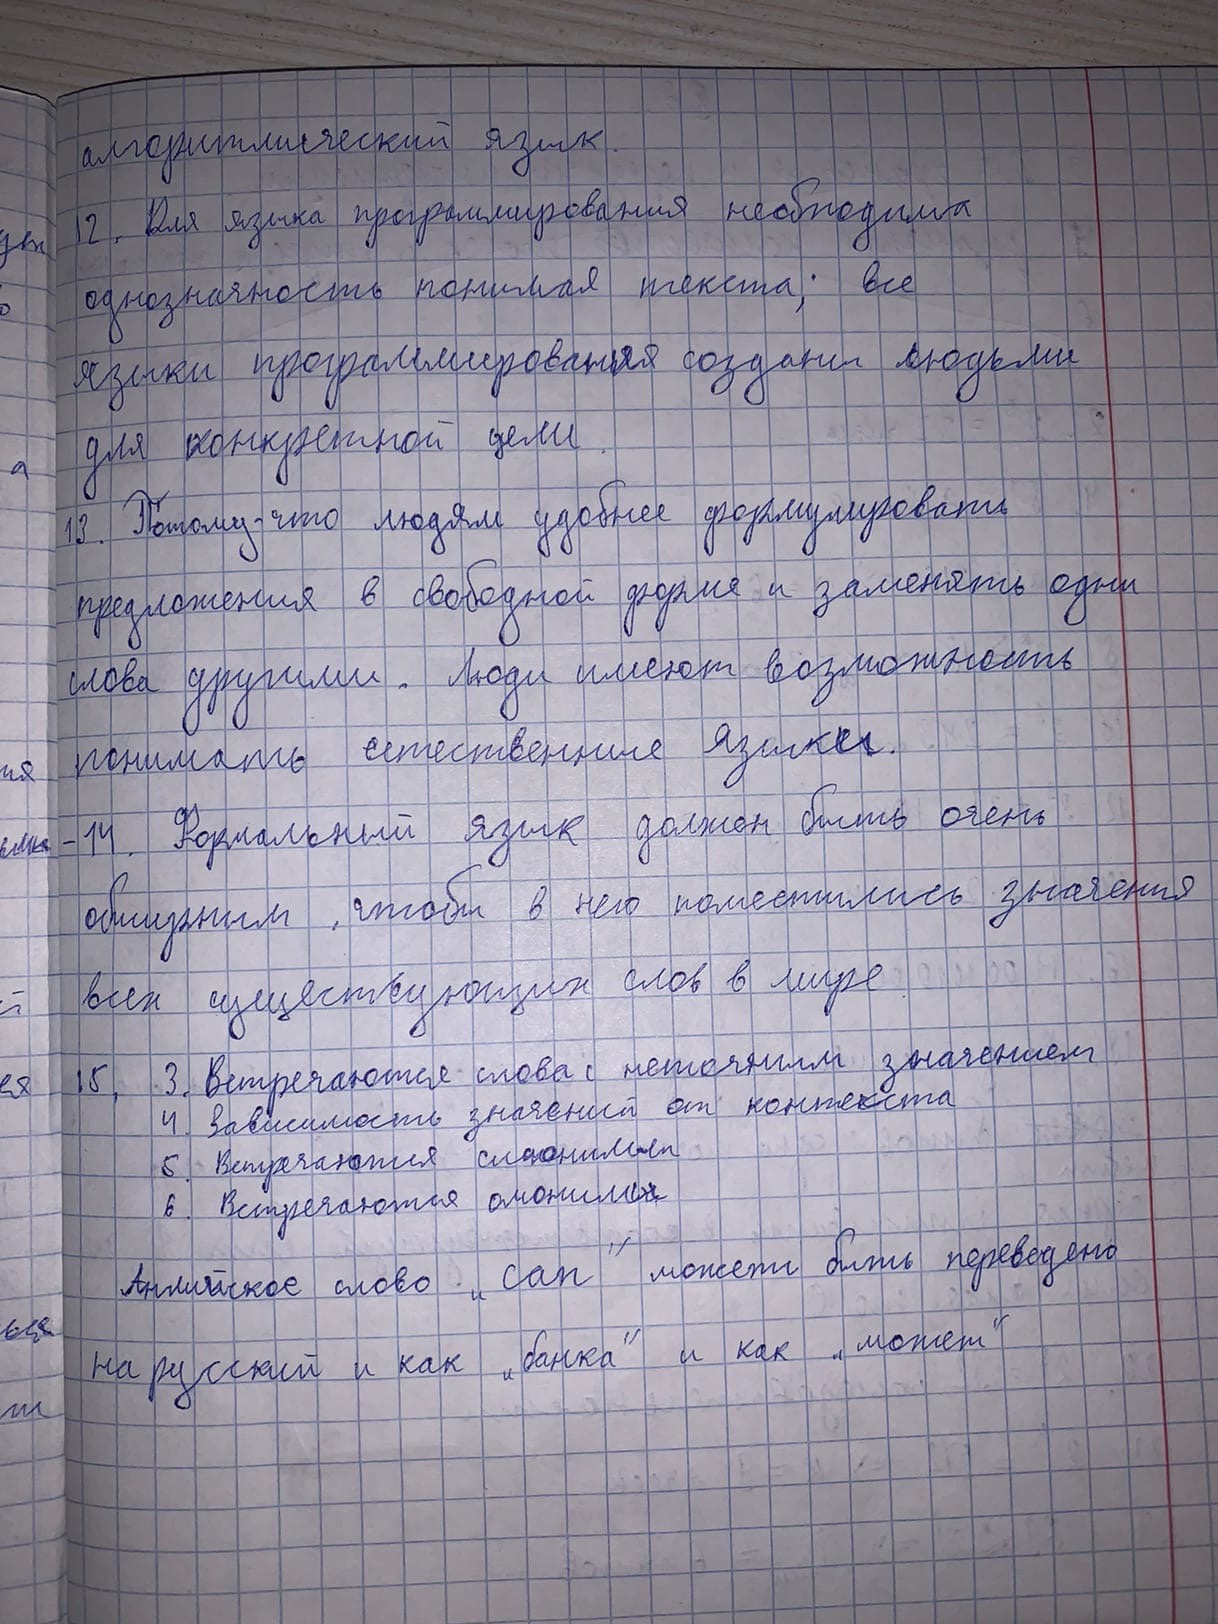 алгоритмический язык.
12. Для языка программирования необходима
однозначность понимая текста; все
языки программирования созданы людьми
для конкретной цели.
13. Потому-что людям удобнее формулировать
предложения в свободной форме и заменять одни
слова другими. Люди имеют возможность
понимать естественные языки.
14. Формальный язык должен быть очень
обширным, чтобы в него поместились значения
всех существующих слов в мире
15. 3. Встречаются слова с неточным значением
4. Зависимость значений от контекста
5. Встречаются синонимы
6. Встречаются омонимы
Английское слово „can" может быть переведено
на русский и как „банка" и как „может"